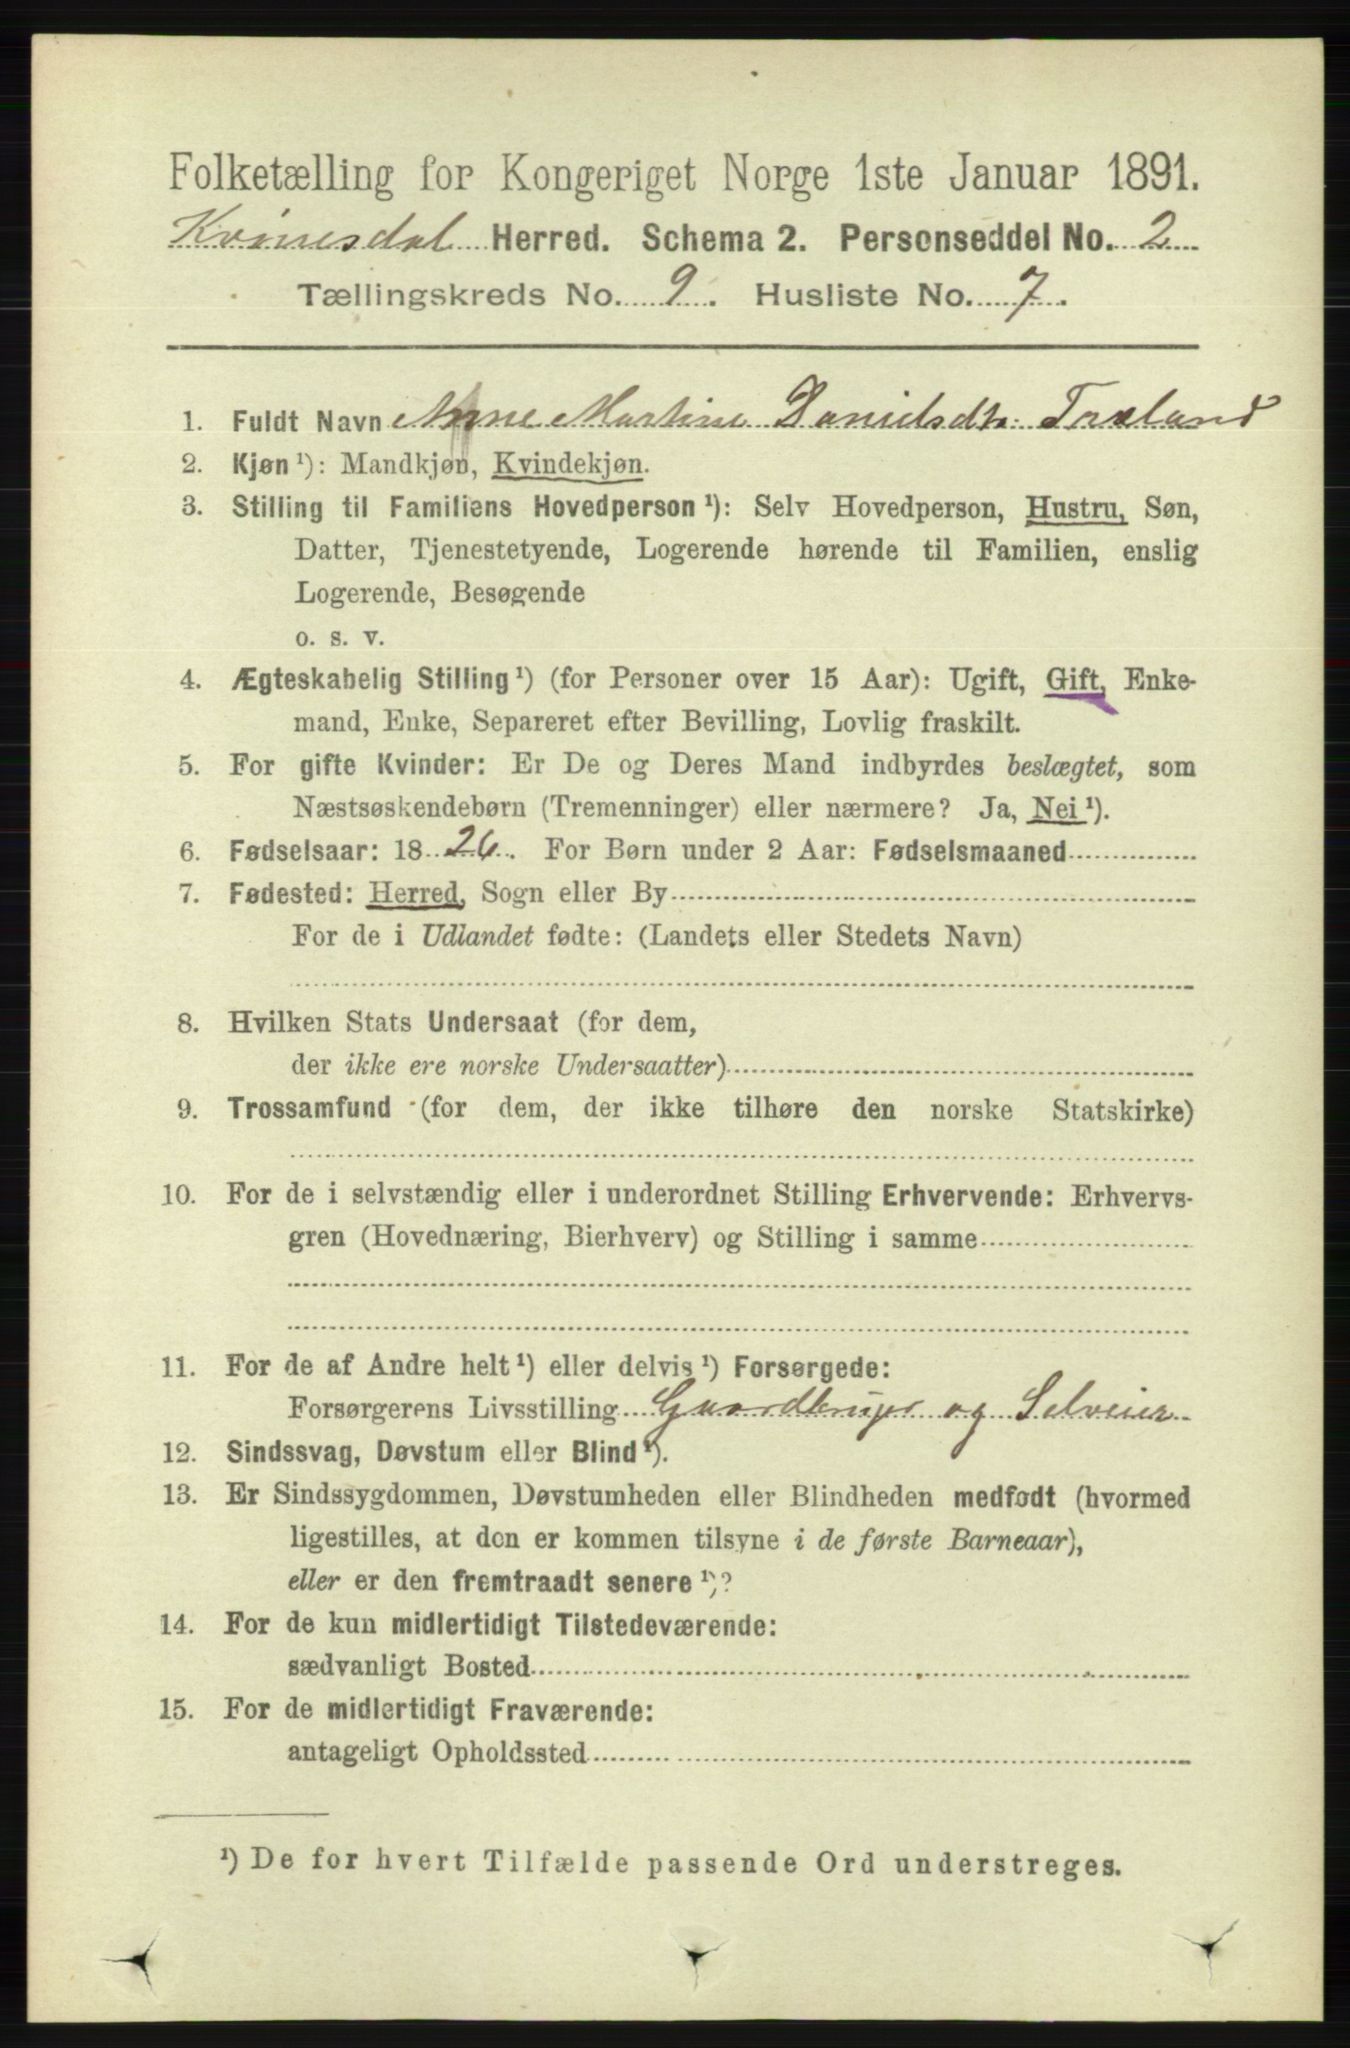 Folketælling for Kongeriget Norge 1ste Januar 1891.
Kvinesdal Herred. Schema 2. Personseddel No. 2
Tællingskreds No. 9. Husliste No. 7.
1. Fuldt Navn Anne Martine Danielsdtr. Træland
2. Kjøn ¹): Mandkjøn, Kvindekjøn.
3. Stilling til Familiens Hovedperson ¹): Selv Hovedperson, Hustru, Søn,
Datter, Tjenestetyende, Logerende hørende til Familien, enslig
Logerende, Besøgende
o. s. v.
4. Ægteskabelig Stilling ¹) (for Personer over 15 Aar): Ugift, Gift, Enke-
mand, Enke, Separeret efter Bevilling, Lovlig fraskilt.
5. For gifte Kvinder: Er De og Deres Mand indbyrdes beslægtet, som
Næstsøskendebørn (Tremenninger) eller nærmere? Ja, Nei ¹).
6. Fødselsaar: 1826. For Børn under 2 Aar: Fødselsmaaned
7. Fødested: Herred, Sogn eller By
For de i Udlandet fødte: (Landets eller Stedets Navn)
8. Hvilken Stats Undersaat (for dem,
der ikke ere norske Undersaatter)
9. Trossamfund (for dem, der ikke tilhøre den norske Statskirke)
10. For de i selvstændig eller i underordnet Stilling Erhvervende: Erhvervs-
gren (Hovednæring, Bierhverv) og Stilling i samme
11. For de af Andre helt ¹) eller delvis ¹) Forsørgede:
Forsørgerens Livsstilling Gaardbruger og Selveier
12. Sindssvag, Døvstum eller Blind ¹).
13. Er Sindssygdommen, Døvstumheden eller Blindheden medfødt (hvormed
ligestilles, at den er kommen tilsyne i de første Barneaar),
eller er den fremtraadt senere ¹)?
14. For de kun midlertidigt Tilstedeværende:
sædvanligt Bosted
15. For de midlertidigt Fraværende:
antageligt Opholdssted
¹) De for hvert Tilfælde passende Ord understreges.